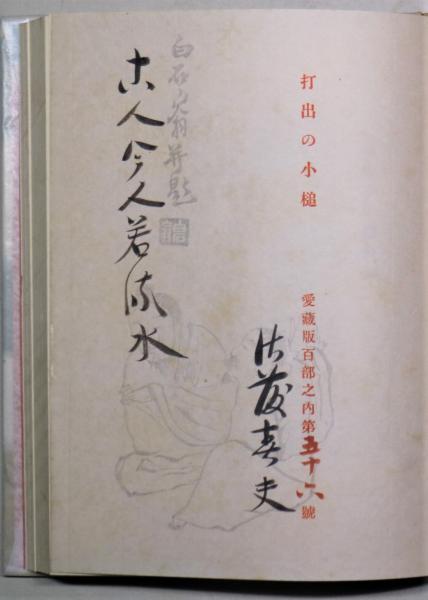 打出の小槌
愛藏版百部之内第五十六號
佐藤春夫
古人今人若流水
白石翁并題